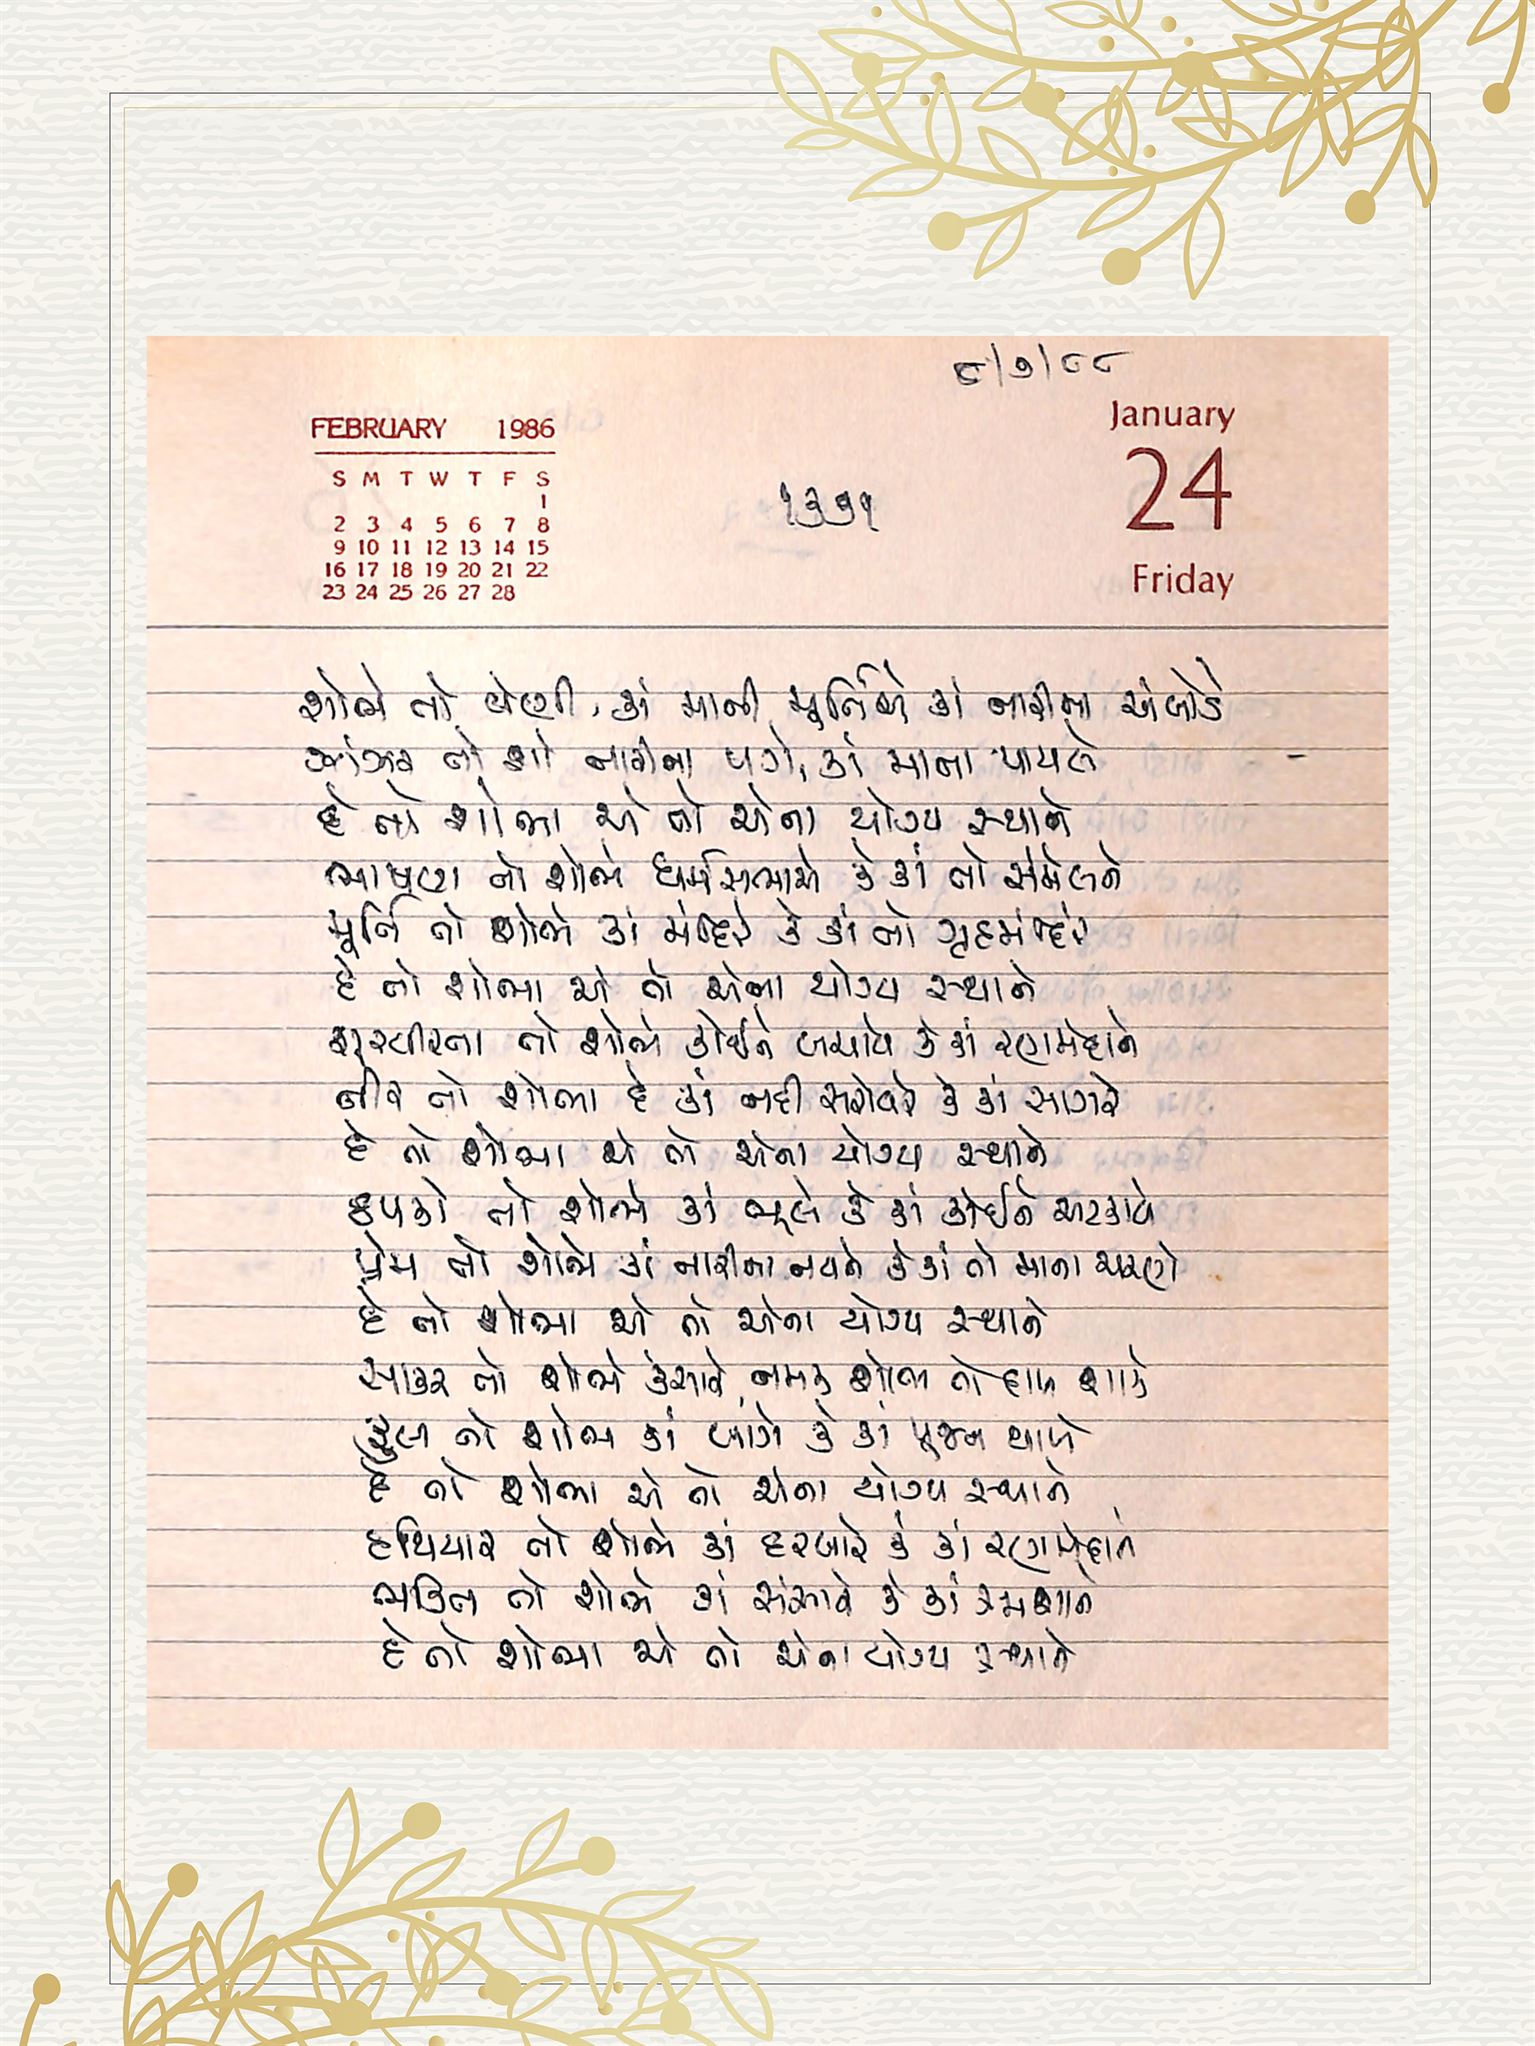 ૮/૭/૮૮
FEBRUARY 1986
S M T W T F S
1
2 3 4 5 6 7 8
9 10 11 12 13 14 15
16 17 18 19 20 21 22
23 24 25 26 27 28
૧૩૩૧
January
24
Friday
શોભે તો વેણી, કાં માની મૂર્તિએ કાં નારીના અંબોડે
ઝાંઝર તો શોભે નારીના પગે, કાં માના પાયલે
છે તો શોભા એ તો એના યોગ્ય સ્થાને
ભાષણ તો શોભે ધર્મસભાએ કે કાં તો સંમેલને
મૂર્તિ તો શોભે કાં મંદિરે કે કાં તો ગૃહમંદિરે
છે તો શોભા એ તો એના યોગ્ય સ્થાને
શૂરવીરતા તો શોભે કોઈને બચાવે કે કાં રણમેદાને
નીર તો શોભા છે કાં નદી સરોવરે કે કાં સાગરે
છે તો શોભા એ તો એના યોગ્ય સ્થાને
ઠપકો તો શોભે કાં ભૂલે કે કાં કોઈને અટકાવે
પ્રેમ તો શોભે કાં નારીના નયને કે કાં તો માના ચરણે
છે તો શોભા એ તો એના યોગ્ય સ્થાને
સાકર તો શોભે કંસારે, નમક શોભે તો દાળ શાકે
ફૂલ તો શોભે કાં બાગે કે કાં પૂજન થાળે
છે તો શોભા એ તો એના યોગ્ય સ્થાને
હથિયાર તો શોભે કાં દરબારે કે કાં રણમેદાને
ભક્તિ તો શોભે કાં સંસારે કે કાં સ્મશાને
છે તો શોભા એ તો એના યોગ્ય સ્થાને